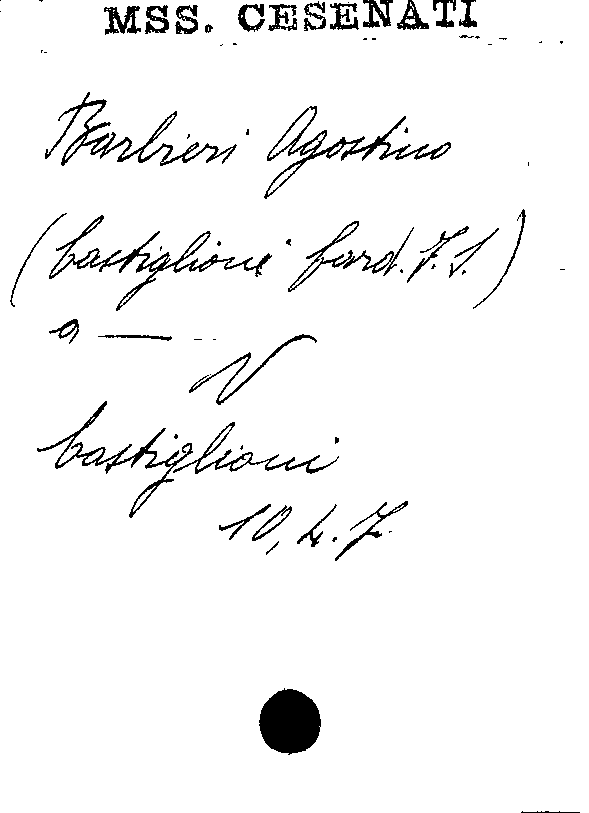 MSS. CESENATI
Barbieri Agostino
(Castiglioni Card. F. S.)
a —
V
Castiglioni
10, 4. 7.